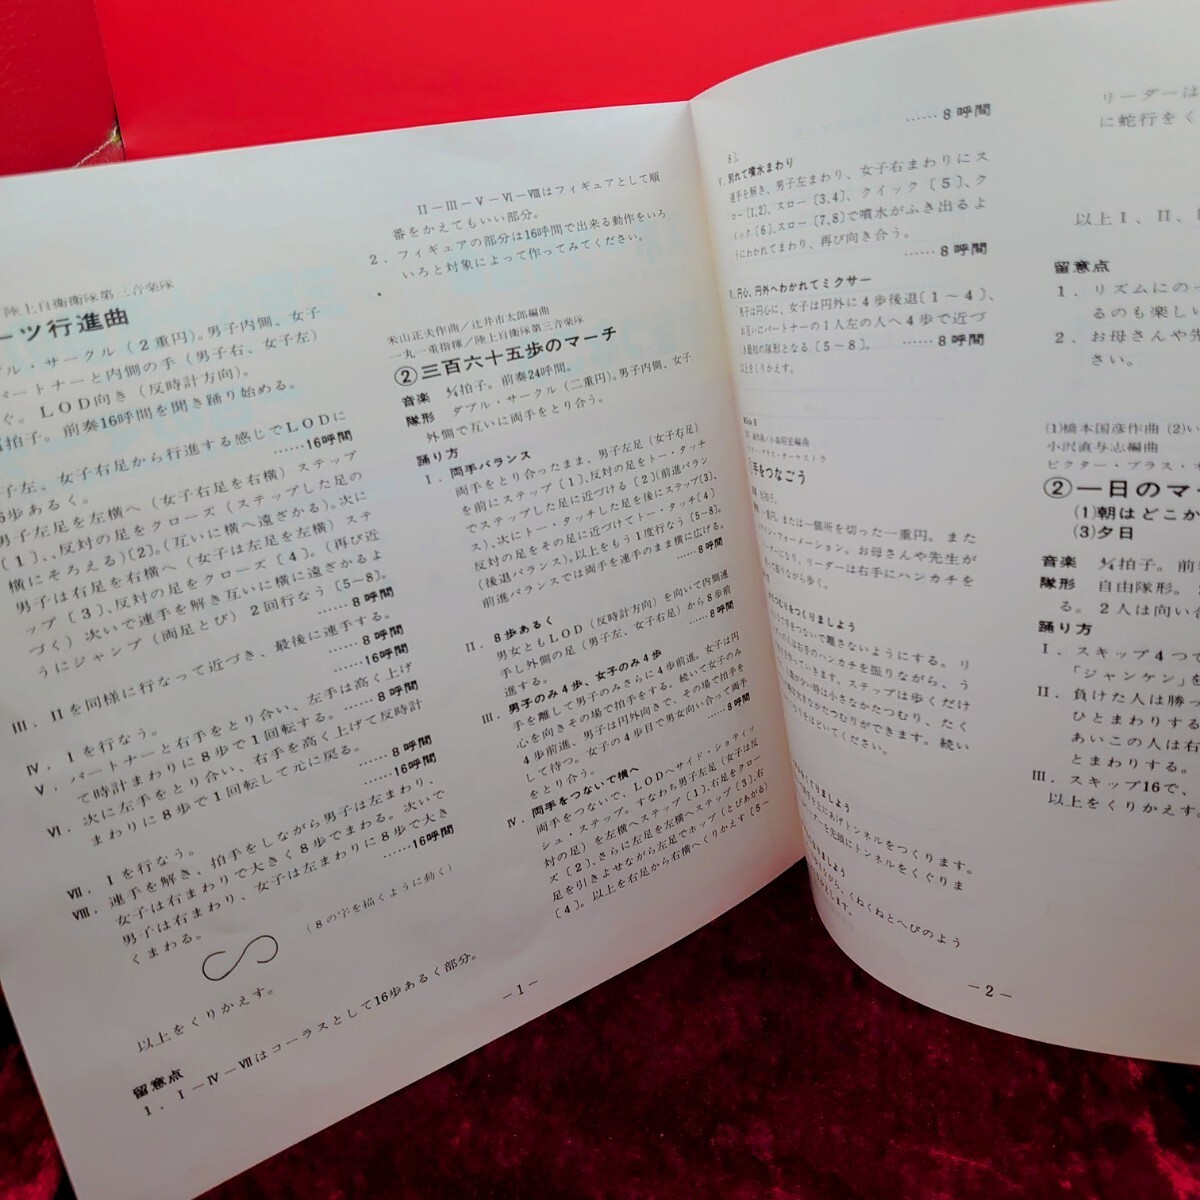 陸上自衛隊第三音楽隊
ーツ行進曲
ブル・サークル(2重円)。男子内側、女子
パートナーと内側の手(男子右、女子左)
ぐ。LOD向き(反時計方向)。
拍子。前奏16呼間を聞き踊り始める。
子左、女子右足から行進する感じでLODに
6歩あるく。 ……16呼間
男子左足を左横へ(女子右足を右横)ステップ
〔1〕、反対の足をクローズ(ステップした足の
横にそろえる)〔2〕。(互いに横へ遠ざかる)。次に
男子は右足を右横へ(女子は左足を左横)ステ
ップ〔3〕、反対の足をクローズ〔4〕。(再び近
づく)次いで連手を解き互いに横に遠ざかるよ
うにジャンプ(両足とび)2回行なう〔5~8〕。
……8呼間
III. IIを同様に行なって近づき、最後に連手する。
……8呼間
IV. Iを行なう。 ……16呼間
V. パートナーと右手をとり合い、左手は高く上げ
て時計まわりに8歩で1回転する。……8呼間
VI. 次に左手をとり合い、右手を高く上げて反時計
まわりに8歩で1回転して元に戻る。……8呼間
VII. Iを行なう。 ……16呼間
VIII. 連手を解き、拍手をしながら男子は左まわり、
女子は右まわりで大きく8歩でまわる。次いで
男子は右まわり、女子は左まわりに8歩で大き
くまわる。 ……16呼間
(8の字を描くように動く)
以上をくりかえす。
留意点
1. I-IV-VIIはコーラスとして16歩あるく部分。
II-III-V-VI-VIIIはフィギュアとして順
番をかえてもいい部分。
2. フィギュアの部分は16呼間で出来る動作をいろ
いろと対象によって作ってみてください。
米山正夫作曲/辻井市太郎編曲
一九一重指揮/陸上自衛隊第三音楽隊
②三百六十五歩のマーチ
音楽 4/4拍子。前奏24呼間。
隊形 ダブル・サークル(二重円)。男子内側、女子
外側で互いに両手をとり合う。
踊り方
I. 両手バランス
両手をとり合ったまま、男子左足(女子右足)
を前にステップ〔1〕、反対の足をトー・タッチ
でステップした足に近づける〔2〕(前進バラン
ス)、次にトー・タッチした足を後にステップ〔3〕、
反対の足をその足に近づけてトー・タッチ〔4〕
(後退バランス)。以上をもう1度行なう〔5~8〕。
前進バランスでは両手を連手のまま横に広げる。
……8呼間
II. 8歩あるく
男女ともLOD(反時計方向)を向いて内側連
手し外側の足(男子左、女子右足)から8歩前
進する。 ……8呼間
III. 男子のみ4歩、女子のみ4歩
手を離して男子のみさらに4歩前進。女子は円
心を向きその場で拍手をする。続いて女子のみ
4歩前進、男子は円外向きで、その場で拍手を
して待つ。女子の4歩目で男女向い合って両手
をとり合う。 ……8呼間
IV. 両手をつないで横へ
両手をつないで、LODへサイド・ショティッ
シュ・ステップ。すなわち男子左足(女子は反
対の足)を左横へステップ〔1〕、右足をクロー
ズ〔2〕、さらに左足を左横へステップ〔3〕、右
足を引きよせながら左足でホップ(とびあがる)
〔4〕。以上を右足から右横へくりかえす〔5~
-1-
8〕。 ……8呼間
V. 別れて噴水まわり
連手を解き、男子左まわり、女子右まわりにス
ロー〔1,2〕、スロー〔3,4〕、クイック〔5〕、ク
イック〔6〕、スロー〔7,8〕で噴水がふき出るよ
うにわかれてまわり、再び向き合う。
……8呼間
円心、円外へわかれてミクサー
男子は円心に、女子は円外に4歩後退〔1~4〕、
お互いにパートナーの1人左の人へ4歩で近づ
き最初の隊形となる〔5~8〕。 ……8呼間
以上をくりかえす。
手をつなごう
一重円、または一個所を切った一重円。また
フォーメーション。お母さんや先生が
ーダーになり、リーダーは右手にハンカチを
りながら歩く。
たつむりをつくりましよう
をつないで離さないようにする。リ
人は右手のハンカチを振りながら、う
を作っていきます。ステップは歩くだけ
数が少ない時は小さなかたつむり、たく
大きなかたつむりができます。続い
りをほどいてください。
くりましよう
あげトンネルをつくります。
ナーを先頭にトンネルをくぐりま
りましよう
ながら、くねくねとへびのよう
-2-
リーダーは
に蛇行をく
以上I、II、
留意点
1. リズムにの
るのも楽しい
2. お母さんや先
さい。
(1)橋本国彦作曲 (2)い
小沢直与志編曲
ビクター・ブラス・
②一日のマー
(1)朝はどこか
(3)夕日
音楽 4/4拍子。前
隊形 自由隊形。
る。2人は向い合
踊り方
I. スキップ4つで
「ジャンケン」を
II. 負けた人は勝っ
ひとまわりする
あいこの人は右
とまわりする。
III. スキップ16で、
以上をくりかえす